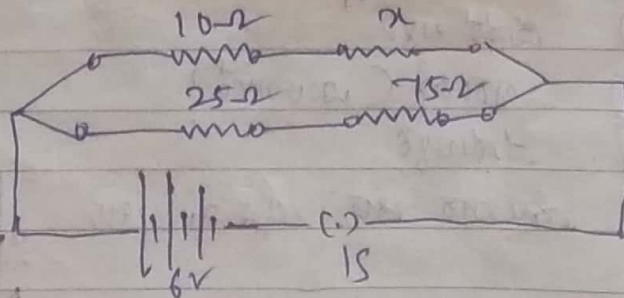 10Ω x
25Ω 75Ω
(.)
6V